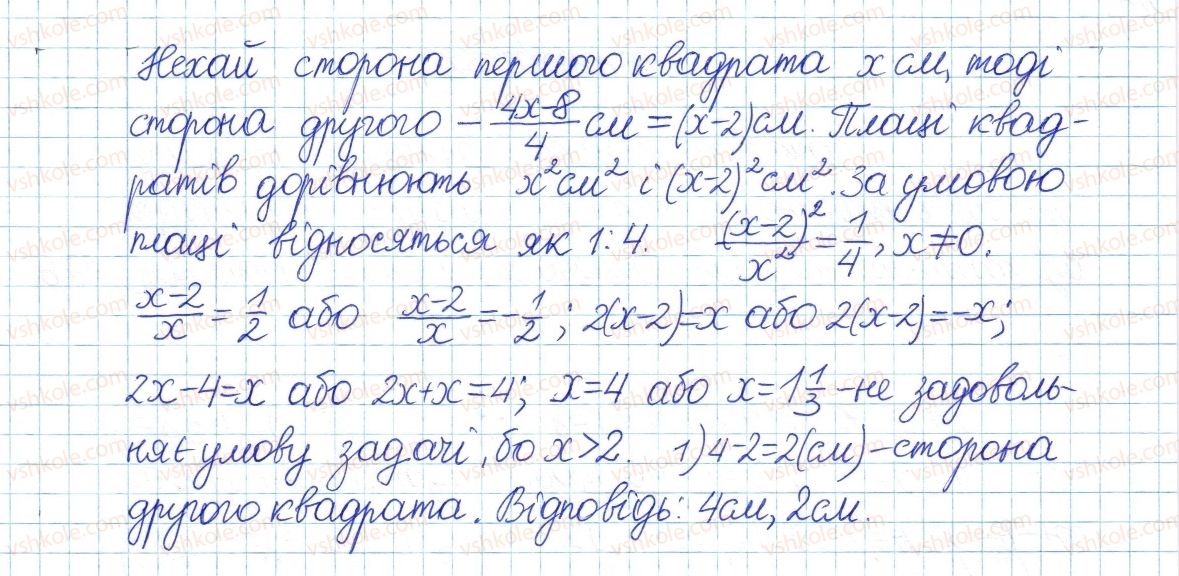 Нехай сторона першого квадрата x см, тоді
сторона другого – \frac{4x-8}{4} см = (x-2) см. Площі квад-
ратів дорівнюють x² см² і (x-2)² см². За умовою
площі відносяться як 1:4. \frac{(x-2)²}{x²} = \frac{1}{4}, x≠0.
\frac{x-2}{x} = \frac{1}{2} або \frac{x-2}{x} = -\frac{1}{2}; 2(x-2)=x або 2(x-2)=-x;
2x-4=x або 2x+x=4; x=4 або x=1\frac{1}{3} – не задоволь-
няє умову задачі, бо x>2. 1) 4-2=2(см) – сторона
другого квадрата. Відповідь: 4см, 2см.
vshkole.com